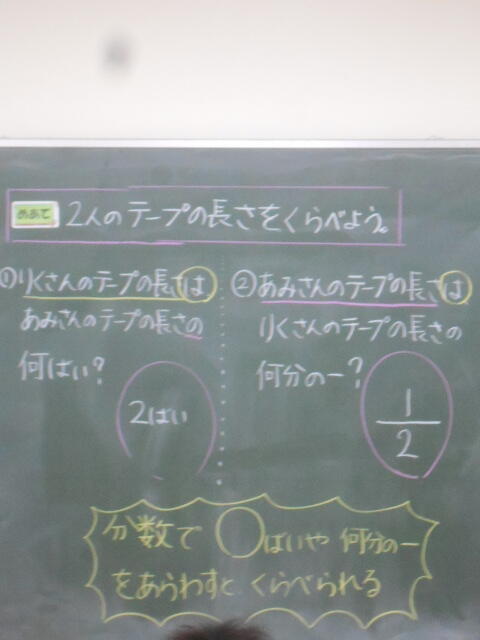 めあて 2人のテープの長さをくらべよう。
①りくさんのテープの長さは
あみさんのテープの長さの
何ばい?
2ばい
②あみさんのテープの長さは
りくさんのテープの長さの
何分の一?
1
2
分数で ○ばいや 何分の一
をあらわすと くらべられる